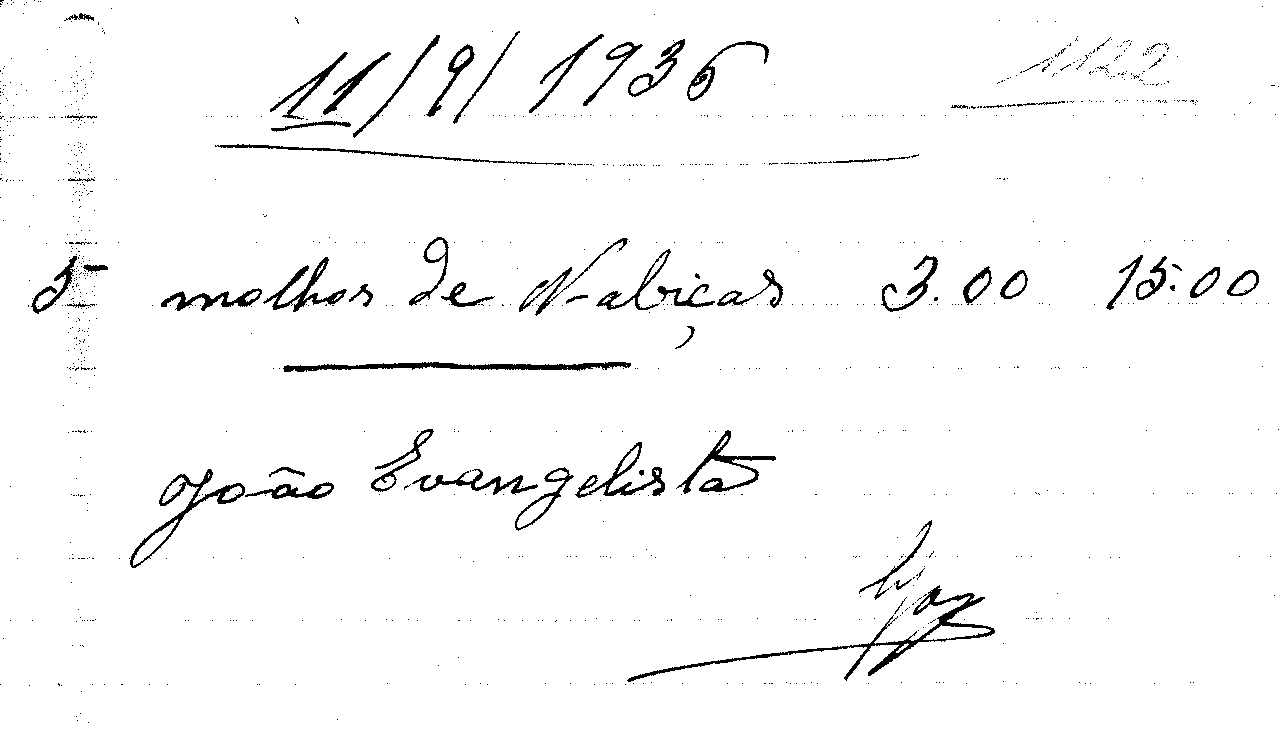 11/9/1936 1122
5 molhos de Nabiças 3.00 15:00
João Evangelista